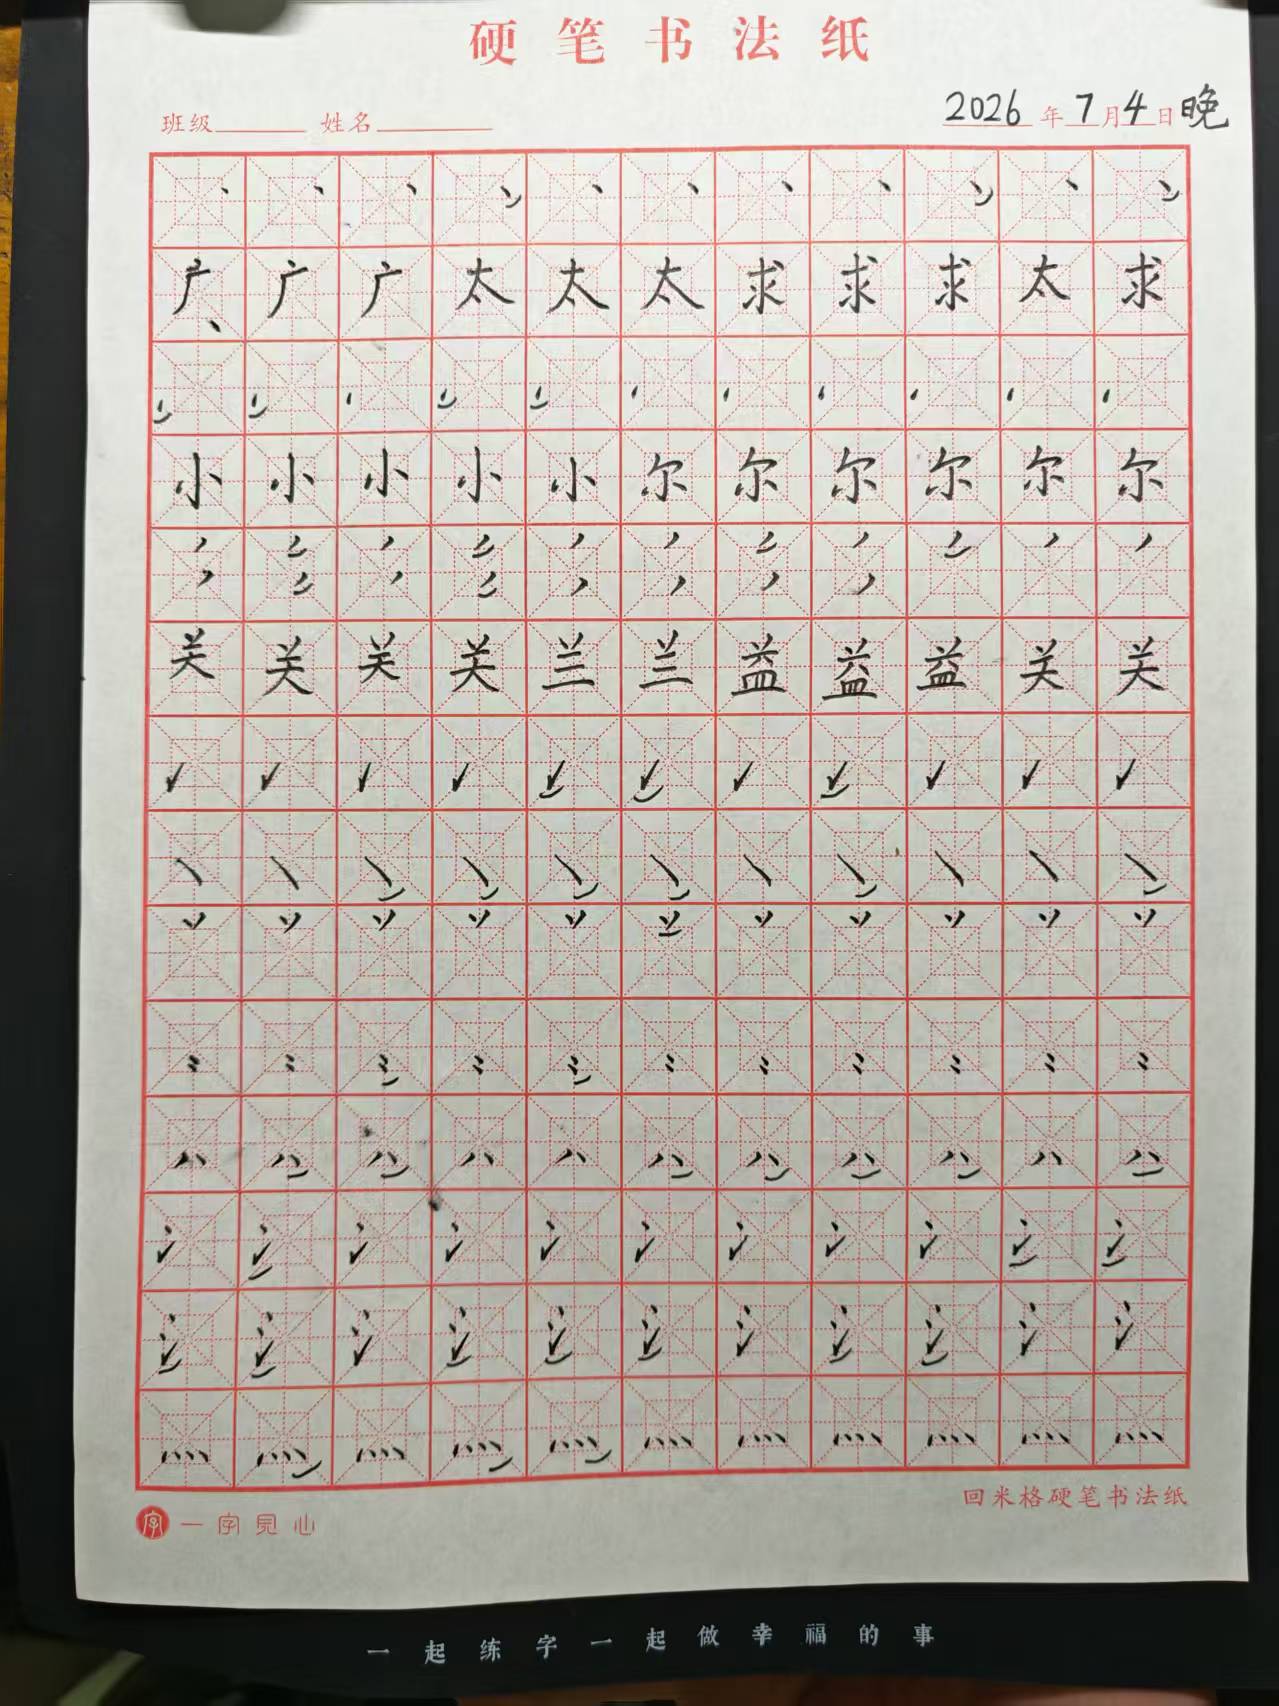 硬笔书法纸
班级 姓名 2026年7月4日晚
广广广太太太求求求太求
小小小小小尔尔尔尔尔尔
关关关关兰兰益益益关关
回米格硬笔书法纸
字 一字见心
一起练字一起做幸福的事